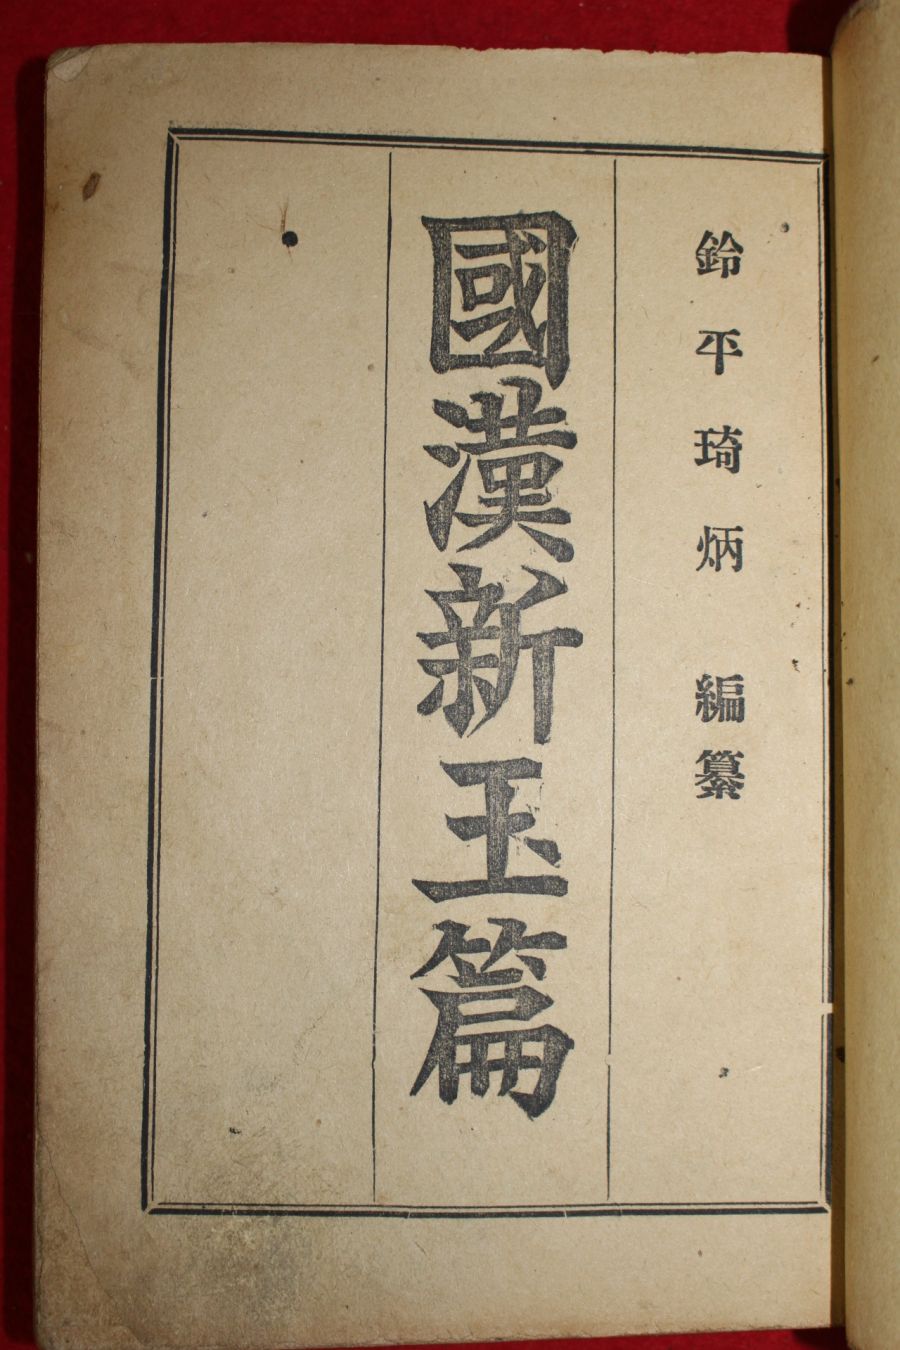 鈴平琦炳 編纂
國漢新玉篇